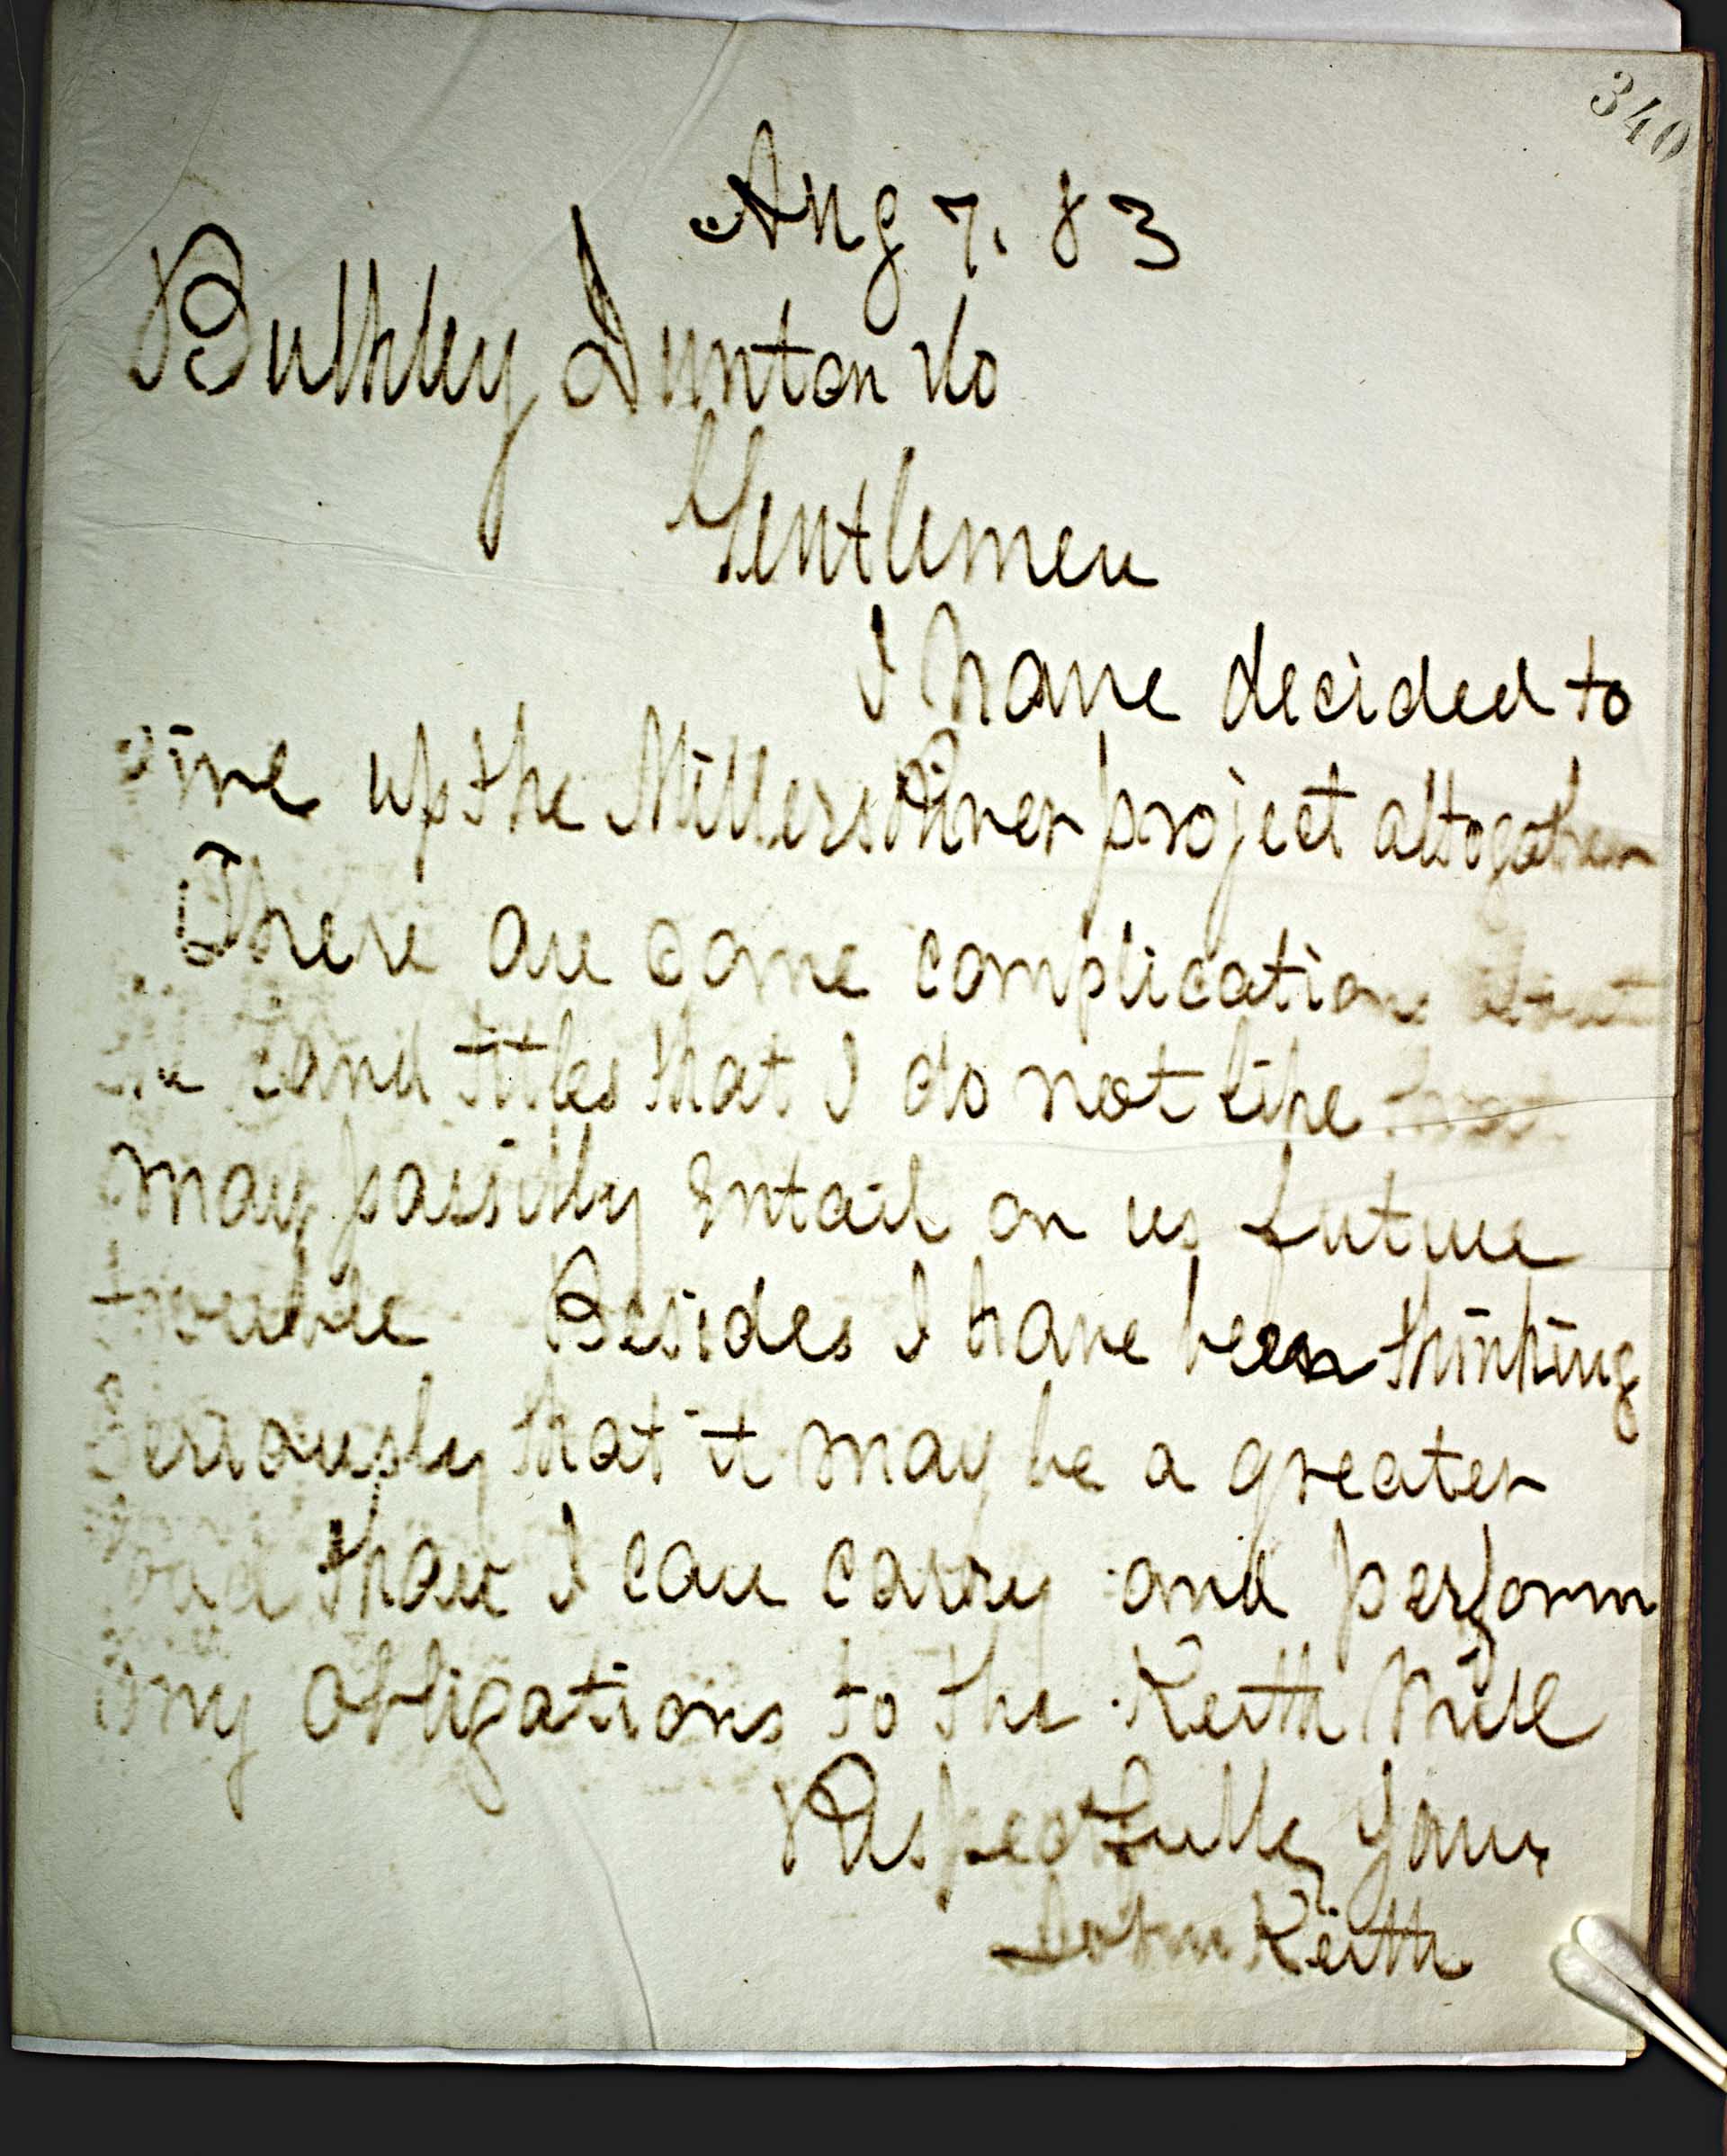 340
Aug 7. 83
Bulkley Dunton & Co
Gentlemen
I have decided to
give up the Millers River project altogether
There are some complications about
the land titles that I do not like that
may possibly entail on us future
trouble Besides I have been thinking
seriously that it may be a greater
load than I can carry and perform
my obligations to the Keith Mill
Respectfully Yours
John Keith